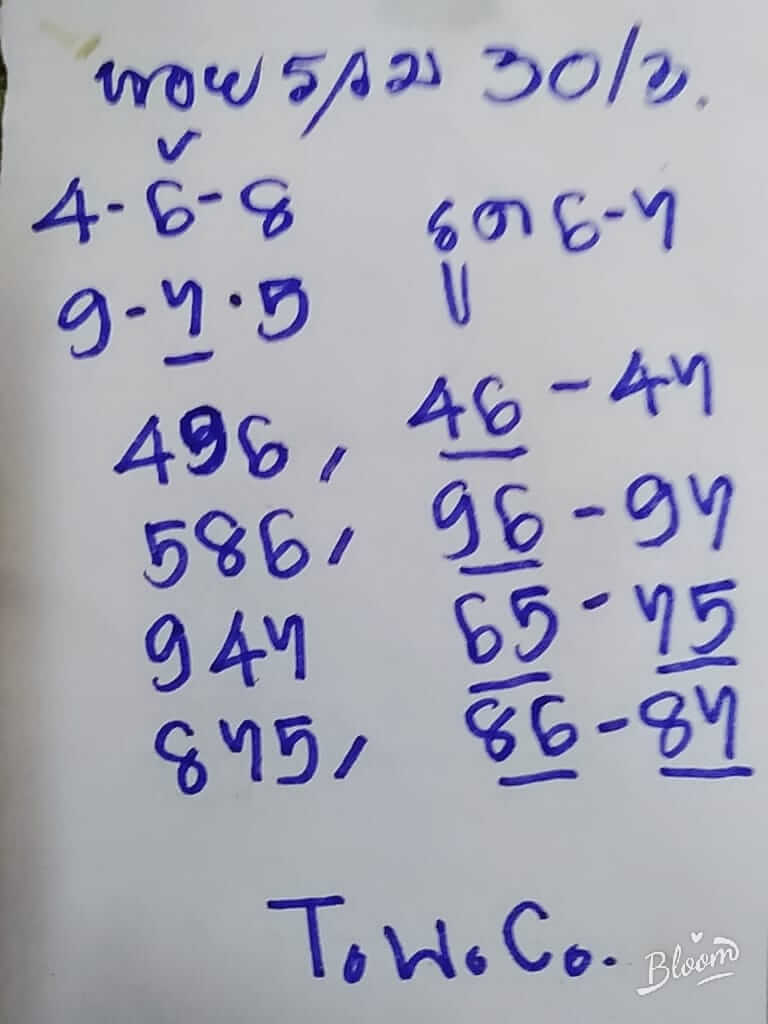 หวยรวม 30/3.
4-6-8
9-7.5
ชุด 6-7
496,
586,
947
875,
46-47
96-97
65-75
86-87
T.W.Co.
Bloom